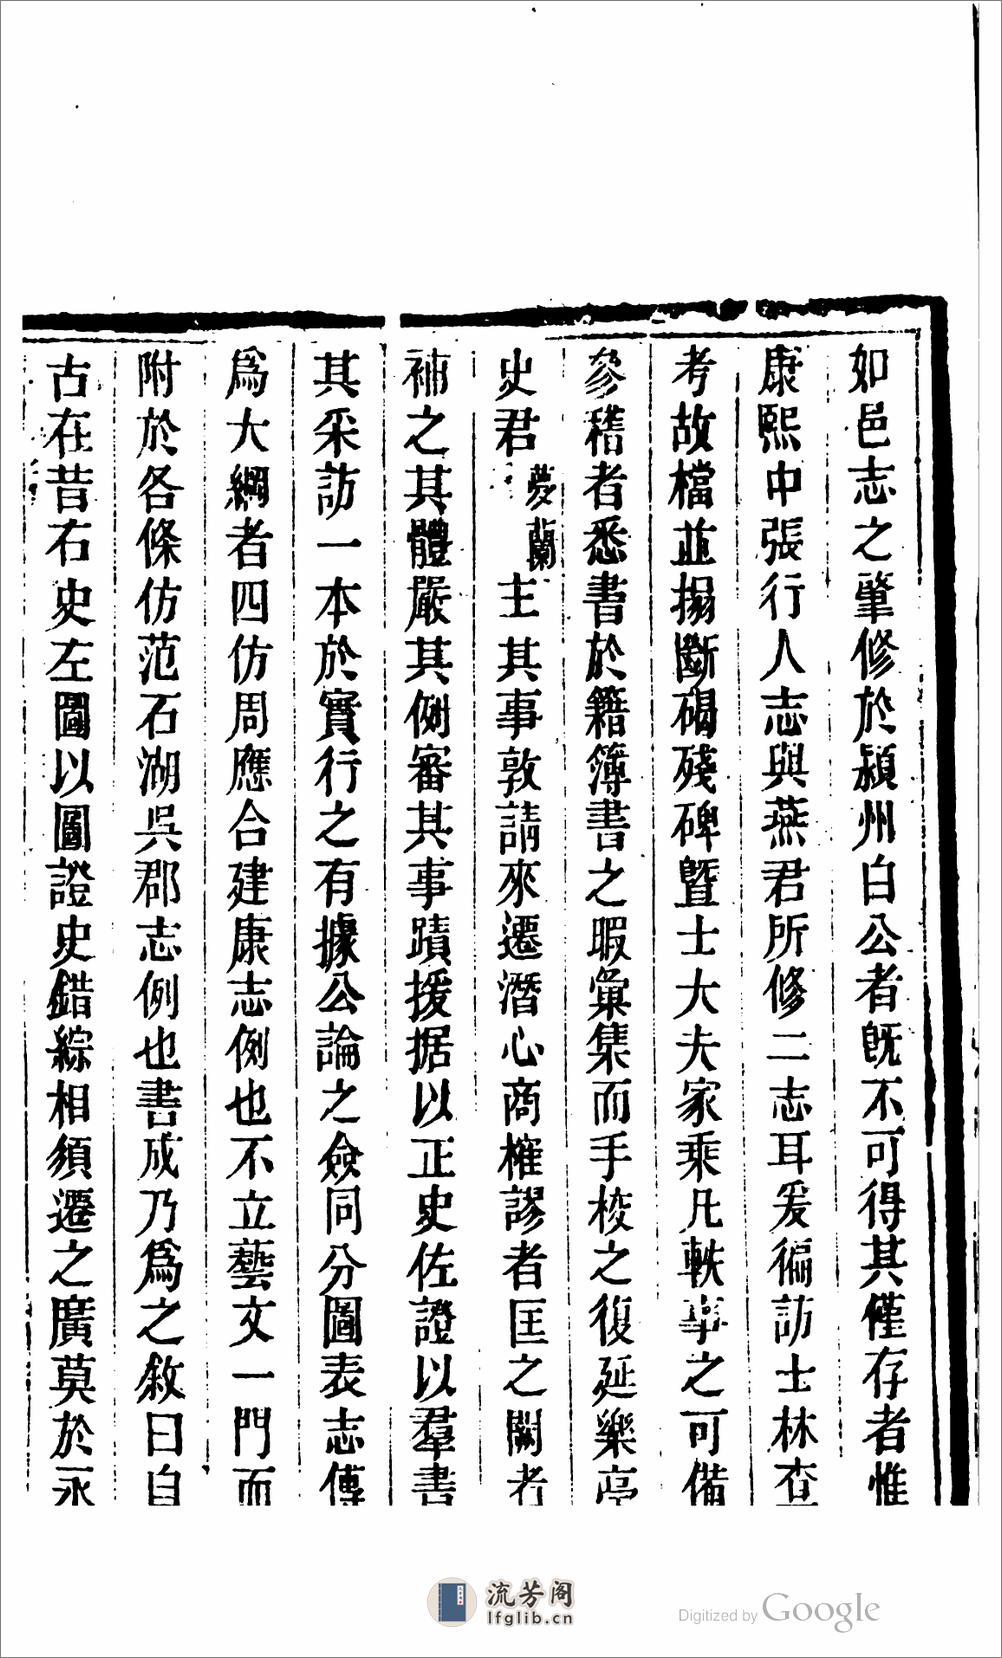 如邑志之肇修於潁州白公者既不可得其僅存者惟
康熙中張行人志與燕君所修二志耳爰徧訪士林查
考故檔並搨斷碣殘碑曁士大夫家乘凡軼事之可備
參稽者悉書於籍簿書之暇彙集而手校之復延樂亭
史君夢蘭主其事敦請來遷潛心商榷謬者匡之闕者
補之其體嚴其例審其事蹟援据以正史佐證以羣書
其采訪一本於實行之有據公論之僉同分圖表志傳
爲大綱者四仿周應合建康志例也不立藝文一門而
附於各條仿范石湖吳郡志例也書成乃爲之敘曰自
古在昔右史左圖以圖證史錯綜相須遷之廣莫於永
流芳阁
lfglib.cn
Digitized by Google